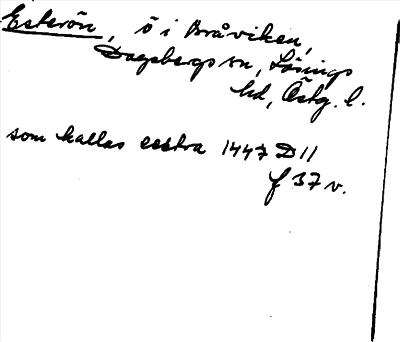 Esterön, ö i Bråviken,
Dagsbergs sn, Lösings
hd, Östg. l.
som kallas esstra 1447 D 11
f 37 v.